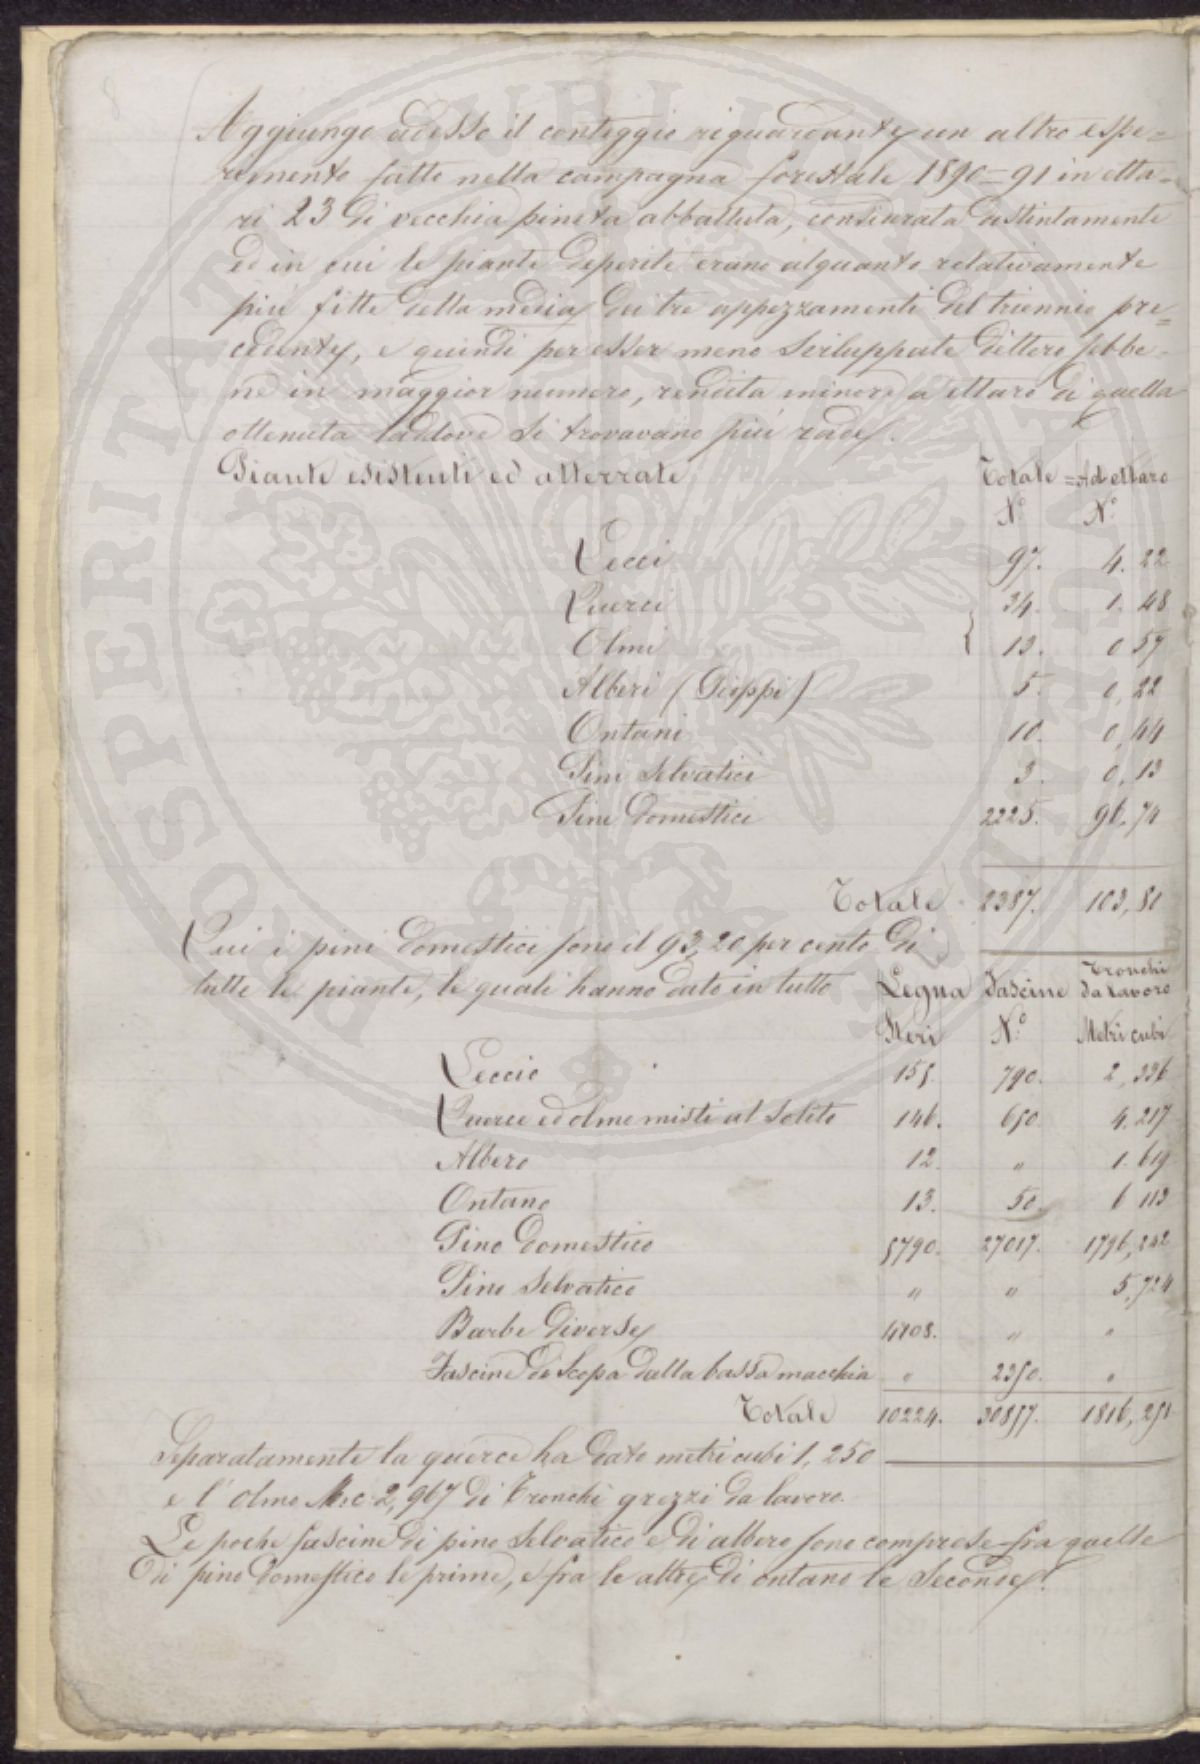 8
Aggiungo adesso il conteggio riguardante un altro espe=
rimento fatto nella campagna forestale 1890=91 in etta=
ri 23 di vecchia pineta abbattuta, considerata distintamente
ed in cui le piante deperite erano alquanto relativamente
più fitte della media dei tre appezzamenti del triennio pre=
cedente, e quindi per esser meno sviluppate dettero sebbe-
ne in maggior numero, rendita minore a ettaro di quella
ottenuta laddove si trovavano più rade.
Piante esistenti ed atterrate Totale = Ad ettaro
N.o N.o
Lecci 97. 4. 22
Querci 34. 1. 48
Olmi 13. 0 57
Alberi (Pioppi) 5. 0, 22
Ontani 10. 0, 44
Pini Selvatici 3. 0, 13
Pini Domestici 2225. 96, 74
Totale 2387. 103, 80
Qui i pini domestici sono il 93,20 per cento di
tutte le piante, le quali hanno dato in tutto Legna Fascine Tronchi da lavoro
Steri N.o Metri cubi
Leccio 155. 790. 2, 336
Querce ed olmo misti al solito 146. 650 4. 217
Albero 12. " 1. 619
Ontano 13. 50. 6 113
Pino Domestico 5790. 27017. 1796, 242
Pino Selvatico " " 5,724
Barbe Diverse 4108. " "
Fascine di Scopa dalla bassa macchia " 2350. "
Totale 10224. 30857. 1816, 251
Separatamente la querce ha dato metri cubi 1, 250
e l'olmo M.c. 2, 967 di Tronchi grezzi da lavoro.
Le poche fascine di pino selvatico e di albero sono comprese fra quelle
di pino domestico le prime, e fra le altre di ontano le seconde.
PROSPERITATI PUBLICAE AUGENDAE